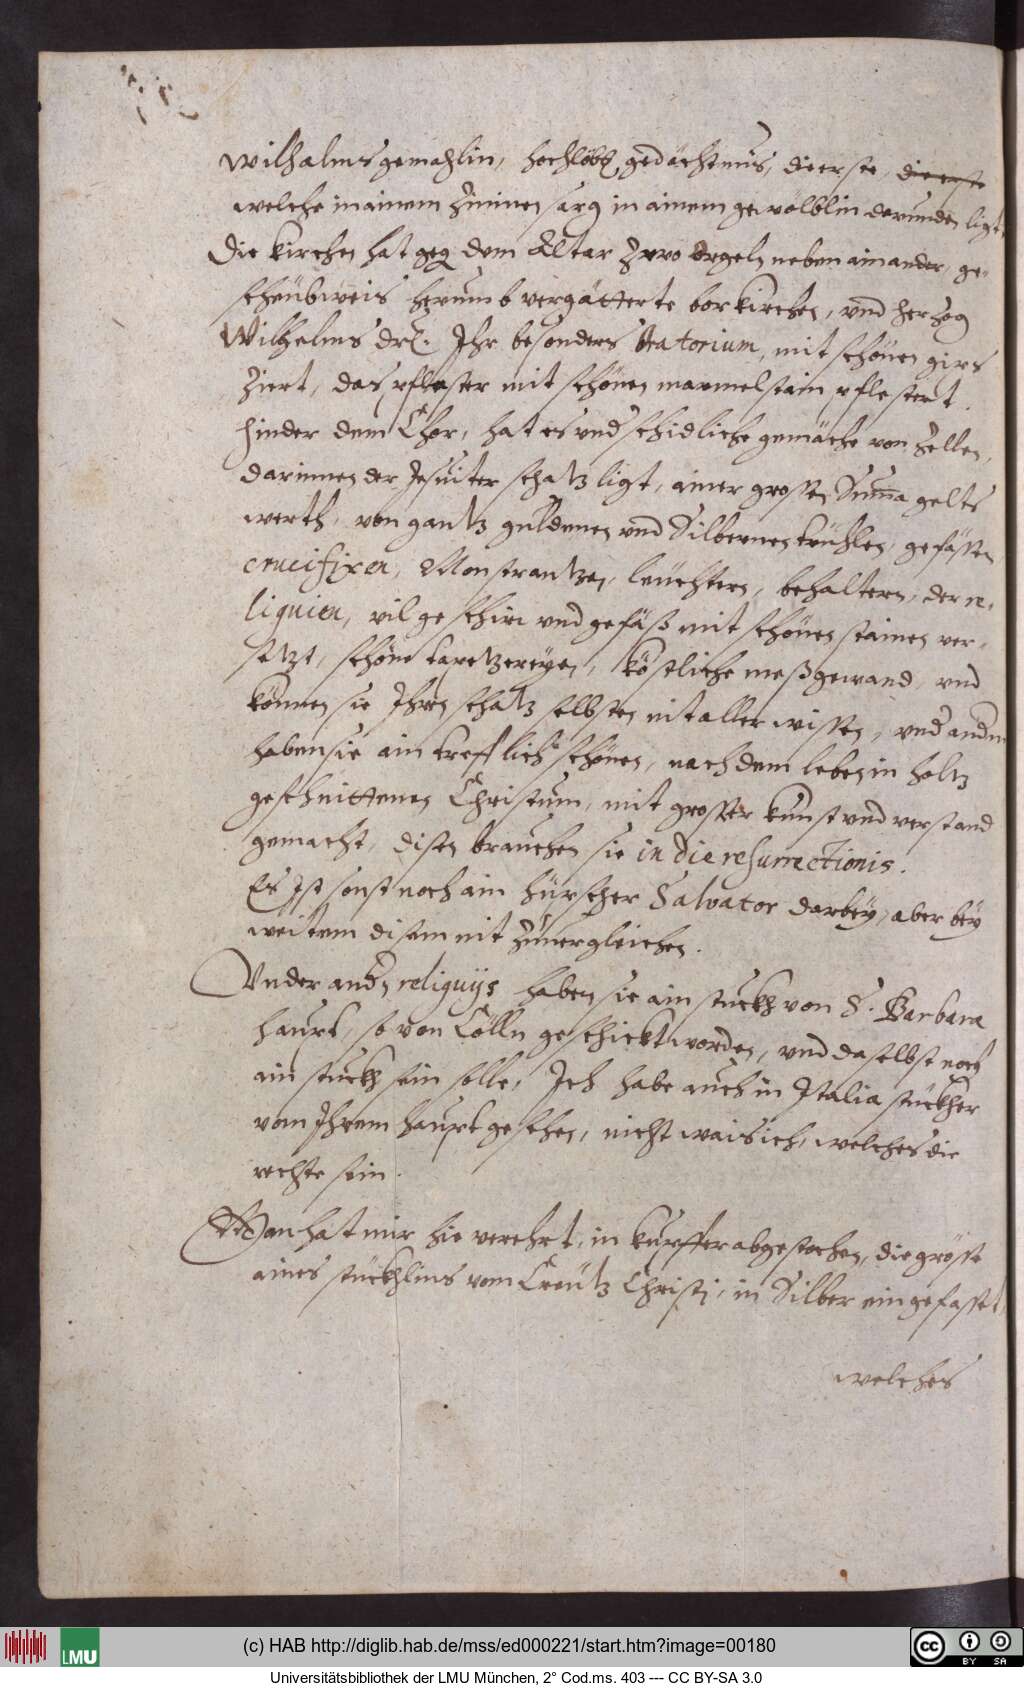 Wilhalms gemahlin, hochlöb. gedächtnus, die erste, die erste
welche in ainem Zinnen sarg in ainem gewölblin darunden ligt,
Die Kirchen hat geg. dem Altar zwo Orgeln neben ainander, ge-
schraubweis herumb vergätterte borkirchen, vnd herzog
Wilhelms drl. Ihr besonders Oratorium, mit schönen gips
ziert, das pflaster mit schönen marmelstain pflestert.
hinder dem Chor, hat es vnderschidliche gemäche von Zellen,
darinnen der Jesuiter schatz ligt, ainer grossen Summa gelts
werth, von gantz guldenen vnd Silbernen trühlen, gefässen
crucifixen, Monstrantzen, leüchtern, behaltern, der re-
liquien, vil geschirr vnd gefäß mit schönen stainen ver-
setzt, schöne tapetzereyen, köstliche meßgewand, vnd
können sie Ihren schatz selbsten nit aller wissen, vnder andern
haben sie ain trefflich schönen, nach dem leben in holtz
geschnittenen Christum, mit grosser kunst vnd verstand
gemacht, disen brauchen sie in die resurrectionis.
Es Ist sonst noch ain hüpscher Salvator darbey, aber bey
weitem disem nit zuuergleichen.
Vnder andn reliquijs haben sie ain stuckh von S. Barbara
haupt, so von Cölln geschickt worden, vnd daselbst noch
ain stuckh sein solle, Ich habe auch in Italia stückher
von Ihrem haupt gesehen, nicht wais ich, welches die
rechte sein.
Man hat mir hie verehrt, in kupffer abgestochen, die grösse
aines stückhlins vom Creütz Christi, in Silber eingefasset,
welches
(c) HAB http://diglib.hab.de/mss/ed000221/start.htm?image=00180
LMU
CC BY SA
Universitätsbibliothek der LMU München, 2° Cod.ms. 403 --- CC BY-SA 3.0